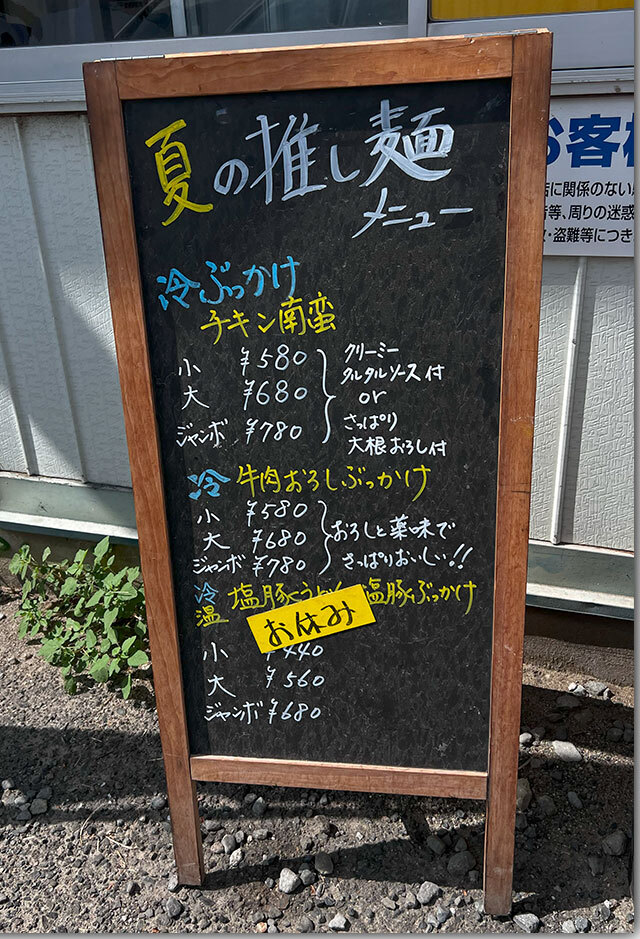 夏の推し麺
メニュー
冷ぶっかけ
チキン南蛮
小 ¥580
大 ¥680
ジャンボ ¥780
クリーミー
タルタルソース付
or
さっぱり
大根おろし付
冷 牛肉おろしぶっかけ
小 ¥580
大 ¥680
ジャンボ ¥780
おろしと薬味で
さっぱりおいしい!!
冷
温
塩豚うどん 塩豚ぶっかけ
お休み
小 ¥440
大 ¥560
ジャンボ ¥680
お客
に関係のない
等、周りの迷惑
・盗難等につき